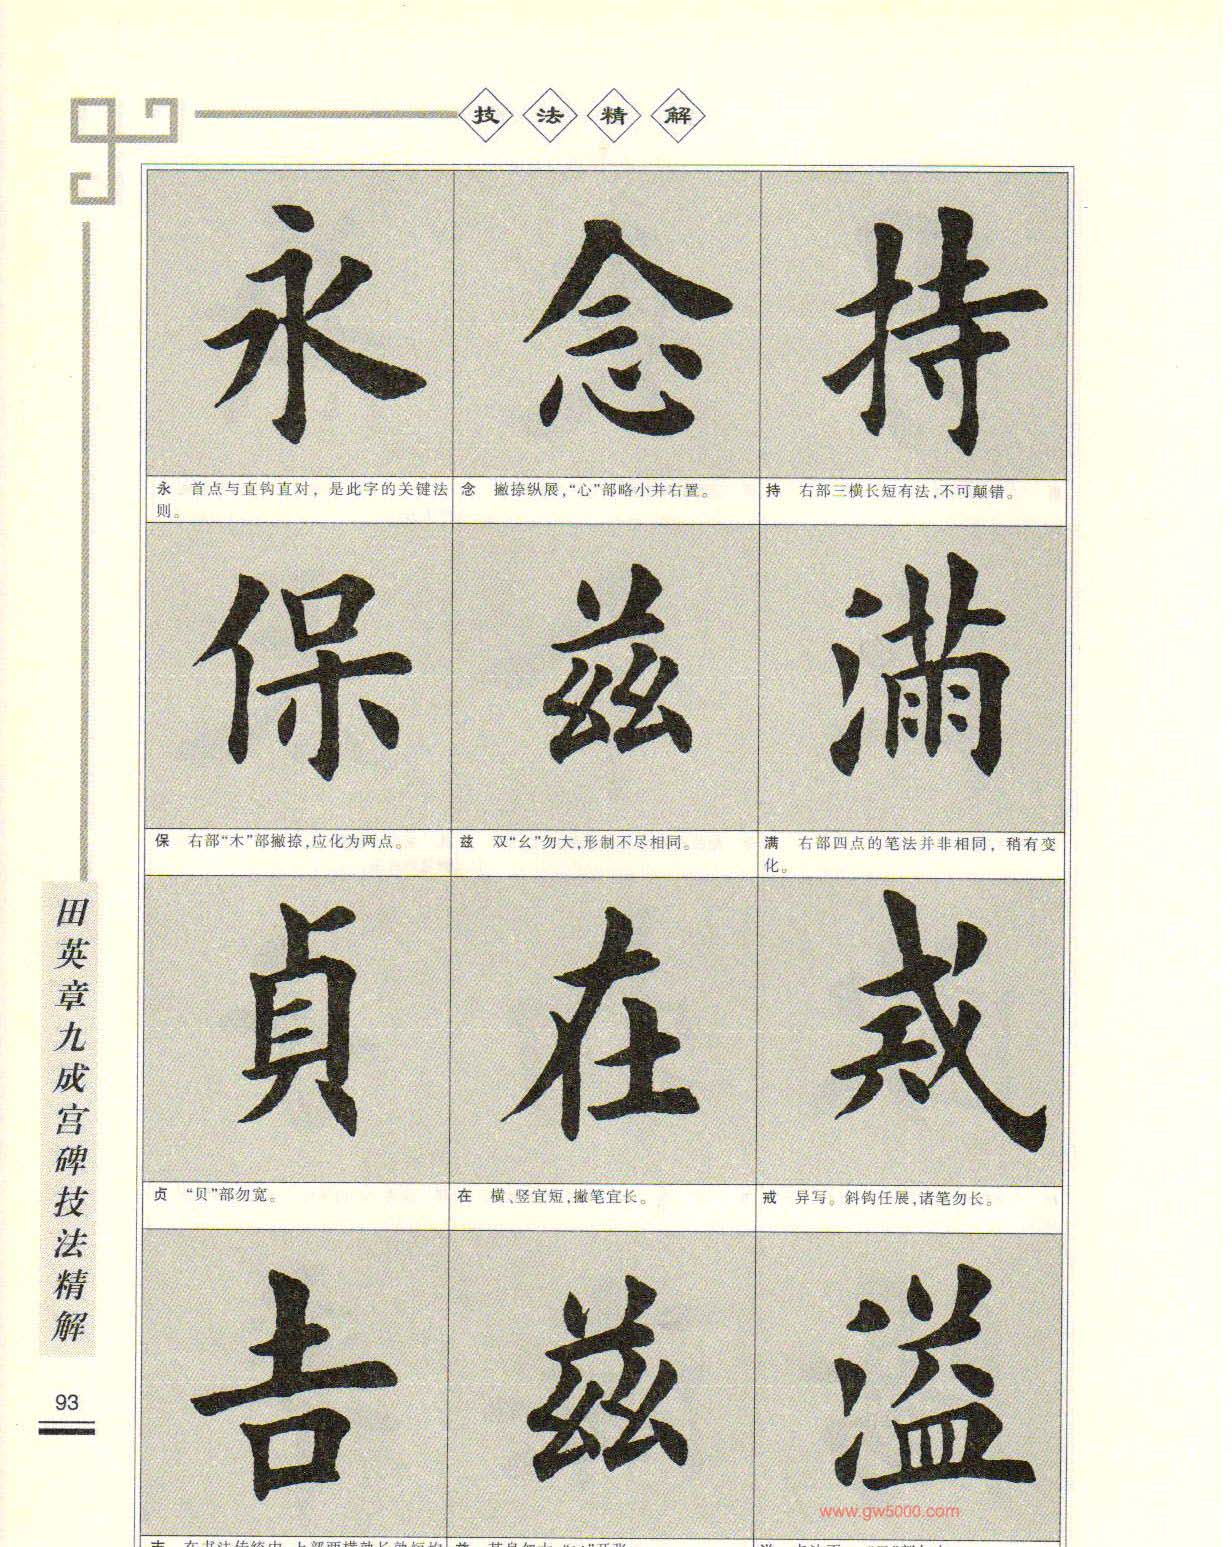 技法精解
永 念 持
永 首点与直钩直对，是此字的关键法
则。
念 撇捺纵展，“心”部略小并右置。
持 右部三横长短有法，不可颠错。
保 兹 满
保 右部“木”部撇捺，应化为两点。
兹 双“幺”勿大，形制不尽相同。
满 右部四点的笔法并非相同，稍有变
化。
貞 在 戒
贞 “贝”部勿宽。
在 横、竖宜短，撇笔宜长。
戒 异写。斜钩任展，诸笔勿长。
吉 兹 溢
www.gw5000.com
田英章九成宫碑技法精解
93